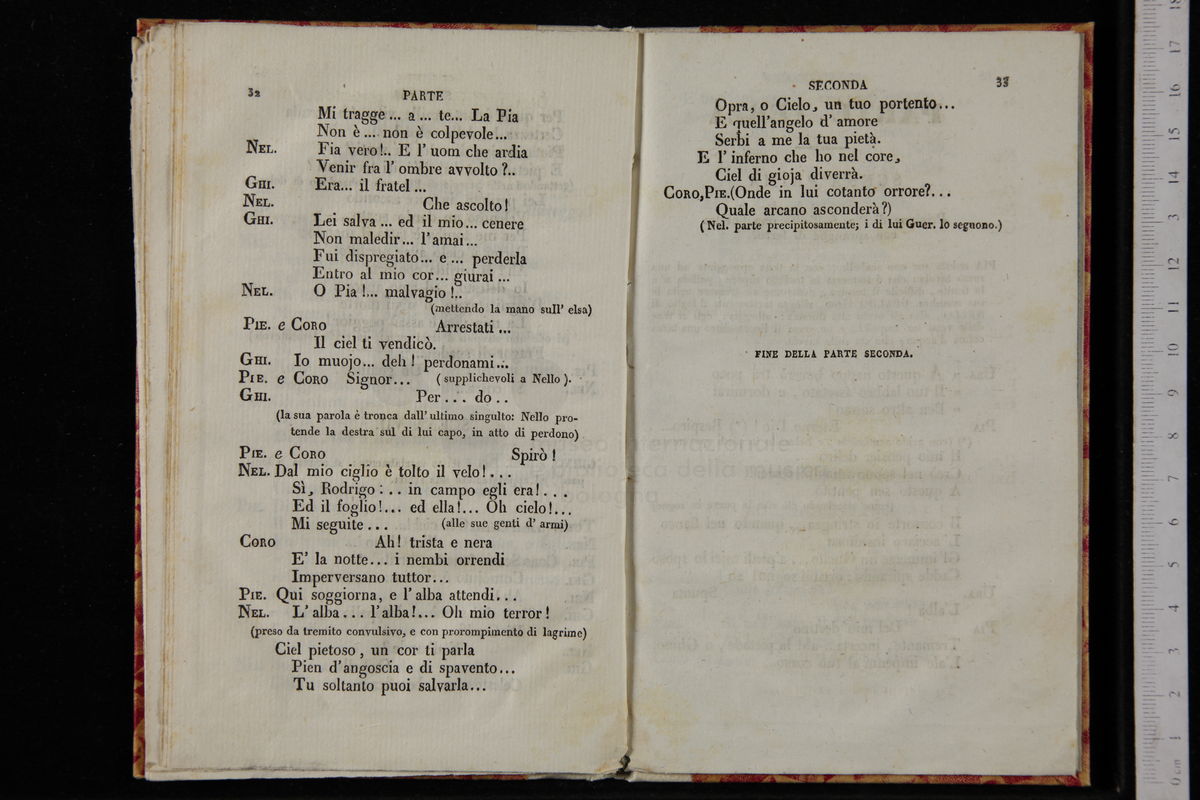 32
PARTE
Mi tragge ... a ... te... La Pia
Non è ... non è colpevole...
NEL. Fia vero!.. E l' uom che ardia
Venir fra l' ombre avvolto ?..
GHI. Era... il fratel ...
NEL. Che ascolto!
GHI. Lei salva ... ed il mio... cenere
Non maledir... l'amai...
Fui dispregiato... e ... perderla
Entro al mio cor... giurai ...
NEL. O Pia !... malvagio !..
(mettendo la mano sull' elsa)
PIE. e CORO Arrestati ...
Il ciel ti vendicò.
GHI. Io muojo... deh ! perdonami...
PIE. e CORO Signor... (supplichevoli a Nello).
GHI. Per... do..
(la sua parola è tronca dall' ultimo singulto: Nello pro-
tende la destra sul di lui capo, in atto di perdono)
PIE. e CORO Spirò !
NEL. Dal mio ciglio è tolto il velo!...
Sì, Rodrigo... in campo egli era!...
Ed il foglio!... ed ella!... Oh cielo!...
Mi seguite ... (alle sue genti d' armi)
CORO Ah! trista e nera
E' la notte... i nembi orrendi
Imperversano tuttor...
PIE. Qui soggiorna, e l' alba attendi...
NEL. L' alba... l'alba!... Oh mio terror!
(preso da tremito convulsivo, e con prorompimento di lagrime)
Ciel pietoso, un cor ti parla
Pien d'angoscia e di spavento...
Tu soltanto puoi salvarla...
SECONDA
33
Opra, o Cielo, un tuo portento...
E quell'angelo d' amore
Serbi a me la tua pietà.
E l' inferno che ho nel core,
Ciel di gioja diverrà.
CORO, PIE. (Onde in lui cotanto orrore?...
Quale arcano asconderà?)
(Nel. parte precipitosamente; i di lui Guer. lo seguono.)
FINE DELLA PARTE SECONDA.
museo internazionale
e biblioteca della musica
bologna